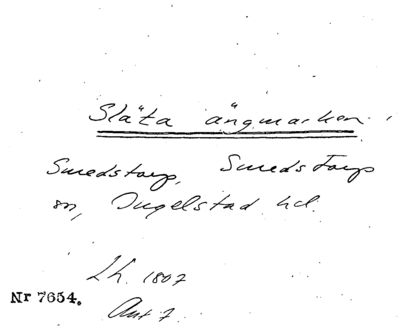 Släta ängmarken.
Smedstorp, Smedstorp
sn, Ingelstad hd.
Lh. 1807
Nr 7654.
Akt 7.